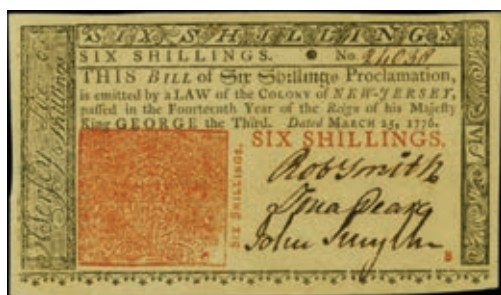 SIX SHILLINGS
SIX SHILLINGS. No.
THIS BILL of Six Shillings Proclamation,
is emitted by a LAW of the COLONY of NEW-JERSEY,
passed in the Fourteenth Year of the Reign of his Majesty
King GEORGE the Third. Dated MARCH 25, 1776.
SIX SHILLINGS.
SIX SHILLINGS.
Rob Smith
John Smyth
B